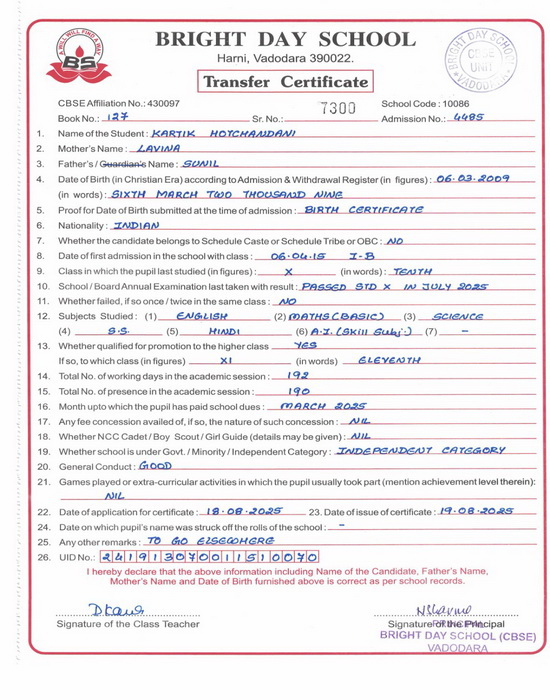 A WILL WILL FIND A WAY
BS
BRIGHT DAY SCHOOL
Harni, Vadodara 390022.
BRIGHT DAY SCHOOL
CBSE
UNIT
VADODARA
Transfer Certificate
CBSE Affiliation No.: 430097 7300 School Code : 10086
Book No.: 127 Sr. No.: Admission No.: 4485
1. Name of the Student : KARTIK HOTCHANDANI
2. Mother's Name : LAVINA
3. Father's / Guardian's Name : SUNIL
4. Date of Birth (in Christian Era) according to Admission & Withdrawal Register (in figures) : 06.03.2009
(in words) : SIXTH MARCH TWO THOUSAND NINE
5. Proof for Date of Birth submitted at the time of admission : BIRTH CERTIFICATE
6. Nationality : INDIAN
7. Whether the candidate belongs to Schedule Caste or Schedule Tribe or OBC : NO
8. Date of first admission in the school with class : 06.04.15 I-B
9. Class in which the pupil last studied (in figures) : X (in words) : TENTH
10. School / Board Annual Examination last taken with result : PASSED STD X IN JULY 2025
11. Whether failed, if so once / twice in the same class : NO
12. Subjects Studied : (1) ENGLISH (2) MATHS (BASIC) (3) SCIENCE
(4) S.S. (5) HINDI (6) A.I. (Skill Subj.) (7) –
13. Whether qualified for promotion to the higher class YES
If so, to which class (in figures) XI (in words) ELEVENTH
14. Total No. of working days in the academic session : 192
15. Total No. of presence in the academic session : 190
16. Month upto which the pupil has paid school dues : MARCH 2025
17. Any fee concession availed of, if so, the nature of such concession : NIL
18. Whether NCC Cadet / Boy Scout / Girl Guide (details may be given) : NIL
19. Whether school is under Govt. / Minority / Independent Category : INDEPENDENT CATEGORY
20. General Conduct : GOOD
21. Games played or extra-curricular activities in which the pupil usually took part (mention achievement level therein):
NIL
22. Date of application for certificate : 18.08.2025 23. Date of issue of certificate : 19.08.2025
24. Date on which pupil's name was struck off the rolls of the school : –
25. Any other remarks : TO GO ELSEWHERE
26. UID No.: 241913070011510070
I hereby declare that the above information including Name of the Candidate, Father's Name,
Mother's Name and Date of Birth furnished above is correct as per school records.
Signature of the Class Teacher Signature of the Principal
BRIGHT DAY SCHOOL (CBSE)
VADODARA